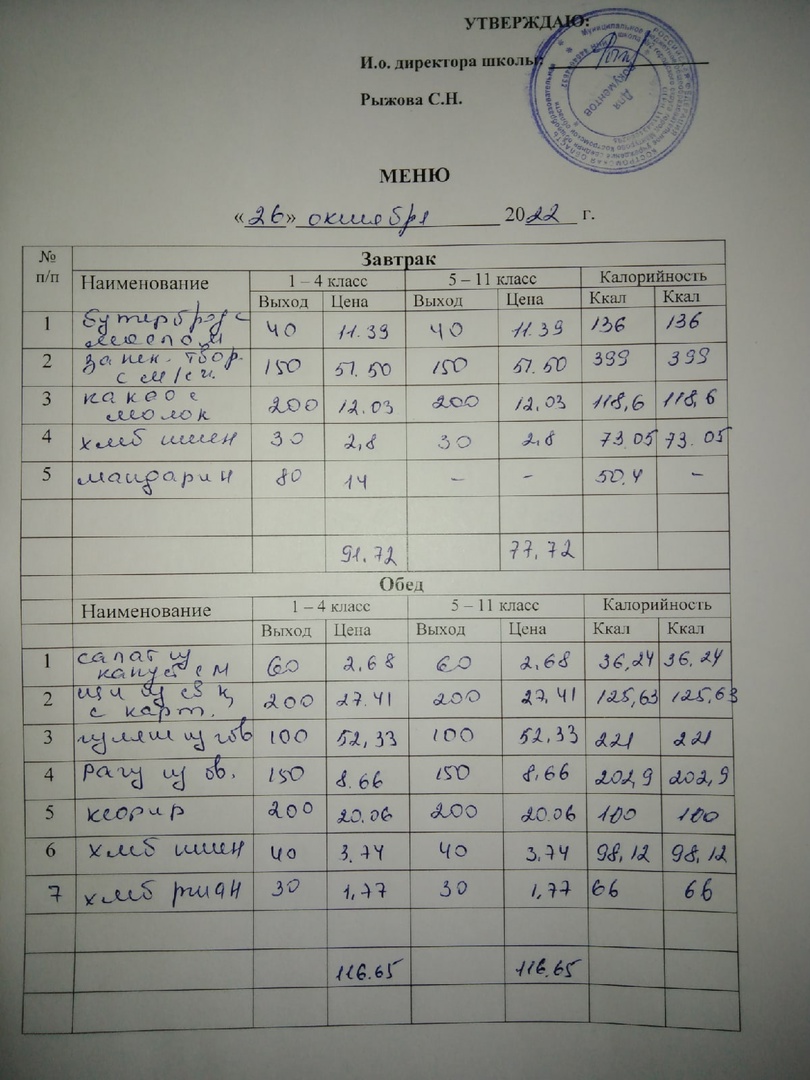 УТВЕРЖДАЮ:
И.о. директора школы:
Рыжова С.Н.
Для документов
МЕНЮ
«26» октября 2022 г.
№ п/п Завтрак
Наименование 1 – 4 класс 5 – 11 класс Калорийность
Выход Цена Выход Цена Ккал Ккал
1 Бутерброд с маслом 40 11.39 40 11.39 136 136
2 запек. твор. с м/сг. 150 51.50 150 51.50 399 399
3 какао с молок 200 12,03 200 12,03 118,6 118,6
4 хлеб пшен 30 2,8 30 2,8 73.05 73.05
5 мандарин 80 14 – – 50.4 –
91.72 77,72
Обед
Наименование 1 – 4 класс 5 – 11 класс Калорийность
Выход Цена Выход Цена Ккал Ккал
1 салат из капусты м 60 2,68 60 2,68 36,24 36,24
2 щи из св к с карт. 200 27.41 200 27,41 125,63 125,63
3 гуляш из гов 100 52,33 100 52,33 221 221
4 Рагу из ов. 150 8.66 150 8,66 202,9 202,9
5 кефир 200 20.06 200 20.06 100 100
6 хлеб пшен 40 3.74 40 3.74 98,12 98,12
7 хлеб ржан 30 1,77 30 1,77 66 66
116.65 116.65